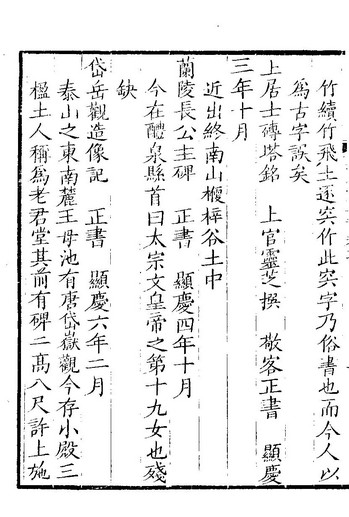 竹續竹飛土逐宍作此宍字乃俗書也而今人以
為古字誤矣
上居士磚塔銘　上官靈芝撰　敬客正書　顯慶
三年十月
近出終南山楩梓谷土中
蘭陵長公主碑　正書　顯慶四年十月
今在醴泉縣首曰太宗文皇帝之第十九女也殘
缺
岱岳觀造像記　正書　顯慶六年二月
泰山之東南麓王母池有唐岱嶽觀今存小殿三
楹土人稱爲老君堂其前有碑二高八尺許上施